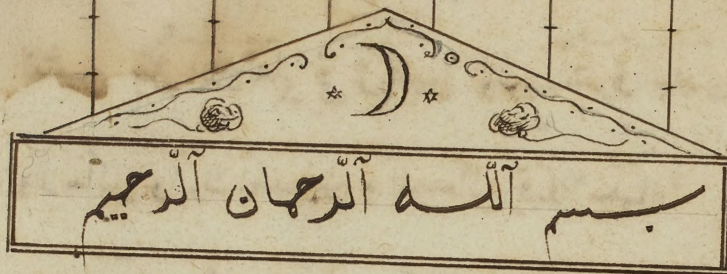 بسم آللّه آلرّحمان آلرّحيم